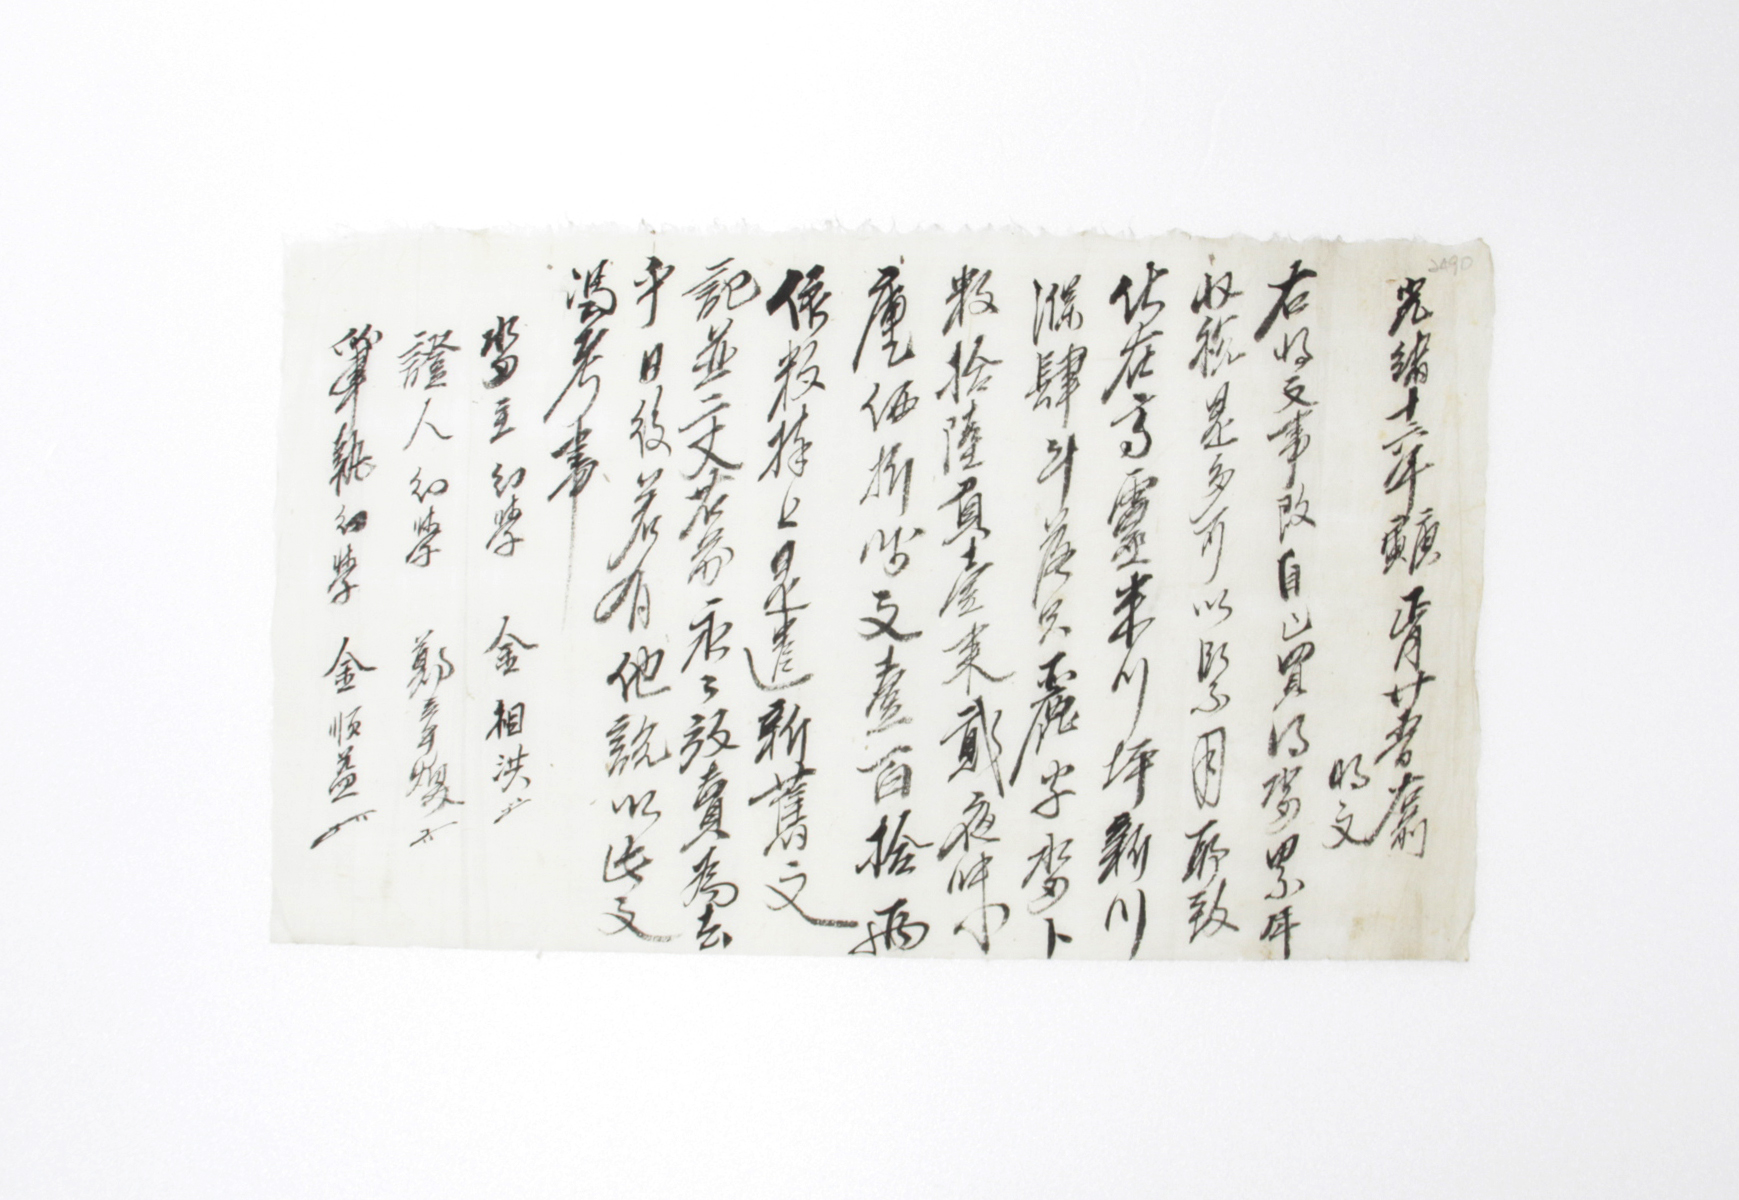 光緖十六年庚寅正月廿六日前
明文
右明文事段自己買得畓累年
收稅是多可以緊用所致
伏在高靈米川坪新川
㳂肆斗落只麗字畓卜
數拾陸負壹束貳夜味
庫伍折價文壹百拾兩
依數捧上是遣新舊文
記並二丈右前永永放賣爲去
乎日後若有他說以此文
憑考事
畓主幼學 金相洪
證人幼學 鄭
筆執幼學 金順益
2490